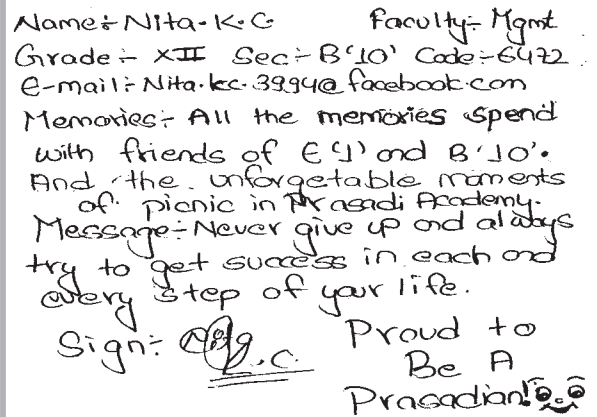 Name:- Nita. K.C Faculty:- Mgmt
Grade:- XII Sec:- B'10' Code:-6472
e-mail:- Nita.kc.3994@facebook.com
Memories:- All the memories spend
with friends of E'1' and B'10'.
And the unforgetable moments
of picnic in Prasadi Academy.
Message:- Never give up and always
try to get success in each and
every step of your life.
Sign:- Nita K.C. Proud to
Be A
Prasadian!